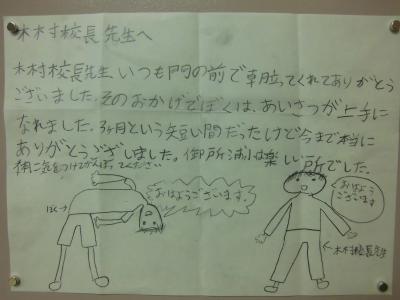 木村校長先生へ
木村校長先生いつも門の前で立ってくれてありがとう
ございました。そのおかげでぼくは、あいさつが上手に
なれました。3ヶ月という短い間だったけど今まで本当に
ありがとうございました。御所浦小は楽しい所でした。
気をつけてがんばってください
おはようございます。
ぼく→
おはよう
ございます
←木村校長先生